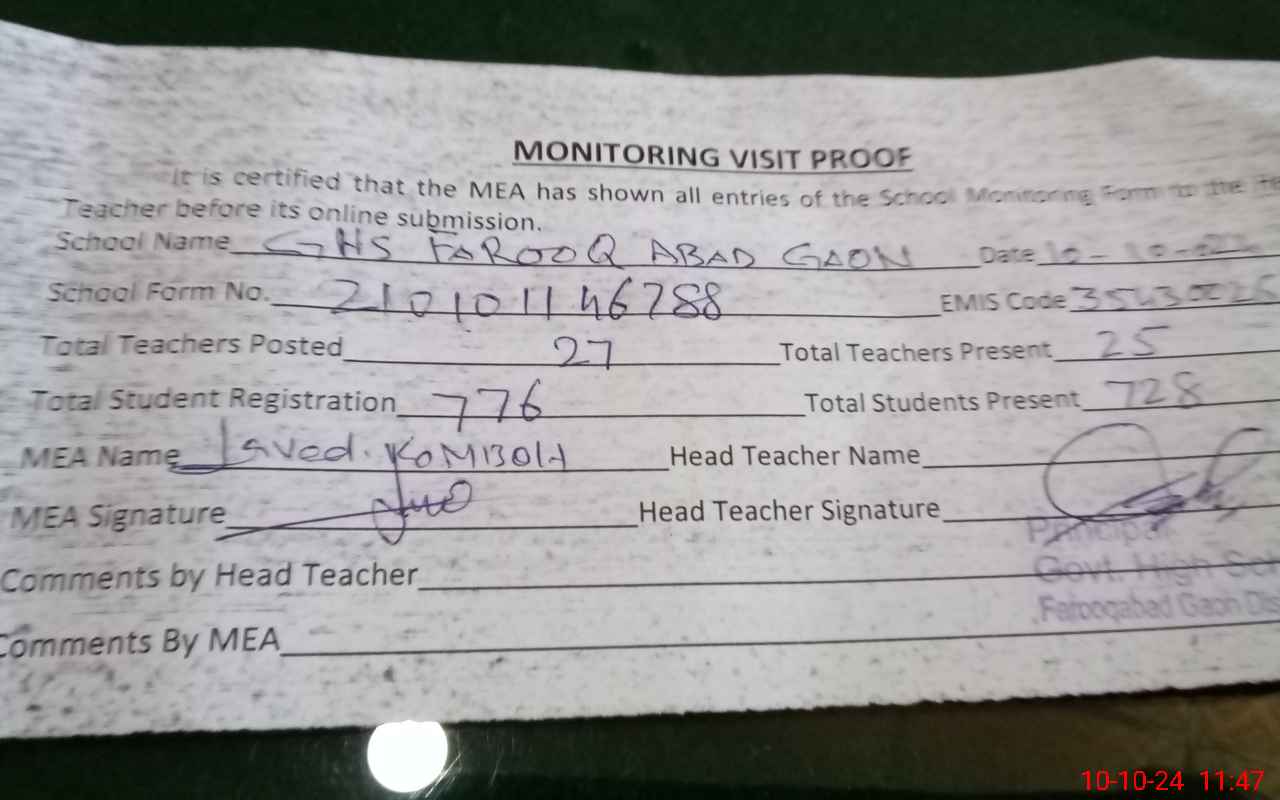 MONITORING VISIT PROOF
It is certified that the MEA has shown all entries of the School Monitoring Form to the
Teacher before its online submission.
School Name GHS FAROOQ ABAD GAON Date 10-10-
School Form No. 210101146788 EMIS Code
Total Teachers Posted 27 Total Teachers Present 25
Total Student Registration 776 Total Students Present 728
MEA Name Javed. KOMBOH Head Teacher Name
MEA Signature Head Teacher Signature
Principal
Comments by Head Teacher Govt. High
Farooqabad Gaon
Comments By MEA
10-10-24 11:47